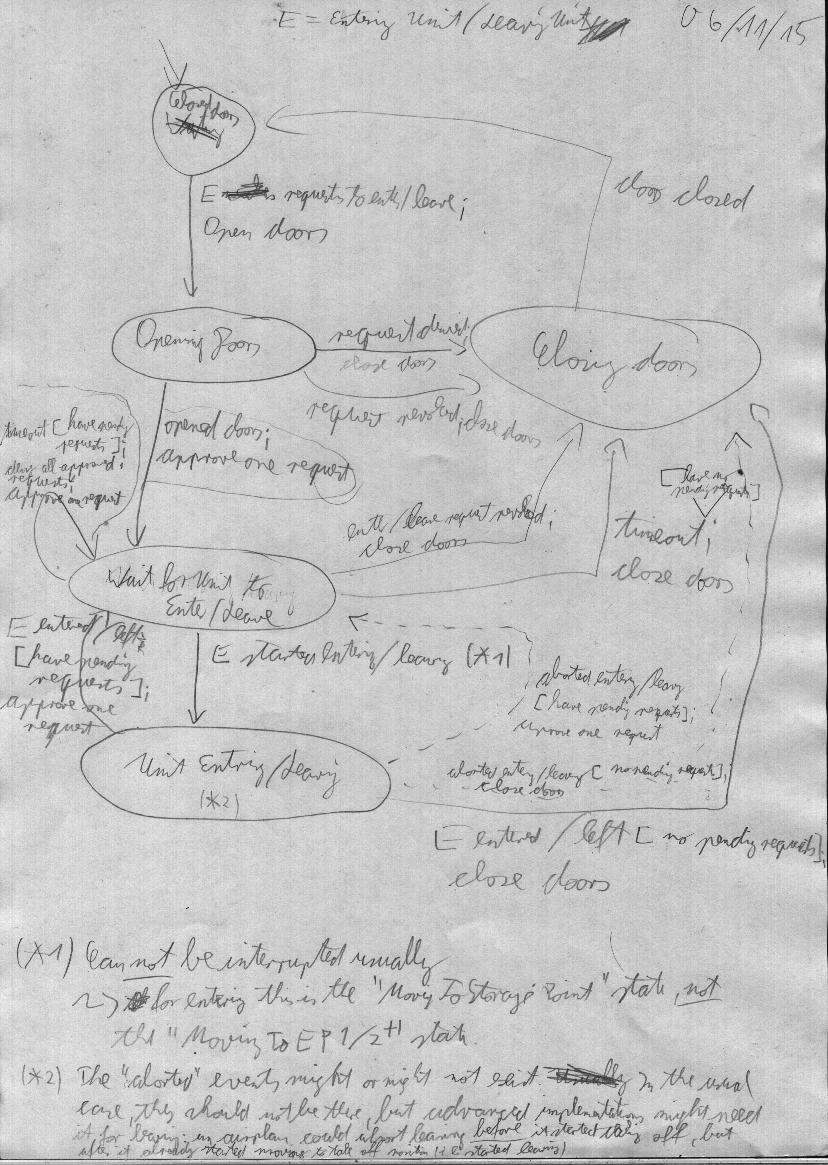 E = Entering Unit/Leaving Unit
06/11/15
Closed doors
E requests to enter/leave;
Open doors
door closed
Opening Doors
request denied;
close doors
Closing doors
request revoked; close doors
timeout [have pending
requests];
deny all approved
requests;
approve one request
opened doors;
approve one request
[have no
pending requests]
enter/leave request revoked;
close doors
timeout;
close doors
Wait for Unit to
Enter/Leave
E entered/left
[have pending
requests];
approve one
request
E started entering/leaving (*1)
aborted entering/leaving
[have pending requests];
approve one request
Unit Entering/Leaving
(*2)
aborted entering/leaving [no pending requests];
close doors
E entered/left [no pending requests];
close doors
(*1) Can not be interrupted usually
for entering this is the "Moving To Storage Point" state, not
the "Moving To EP 1/2" state.
(*2) The "aborted" events might or might not exist. In the usual
case, they should not be there, but advanced implementations might need
it for leaving: an airplane could abort leaving before it started taking off, but
after it already started moving to take off (i.e. started leaving)